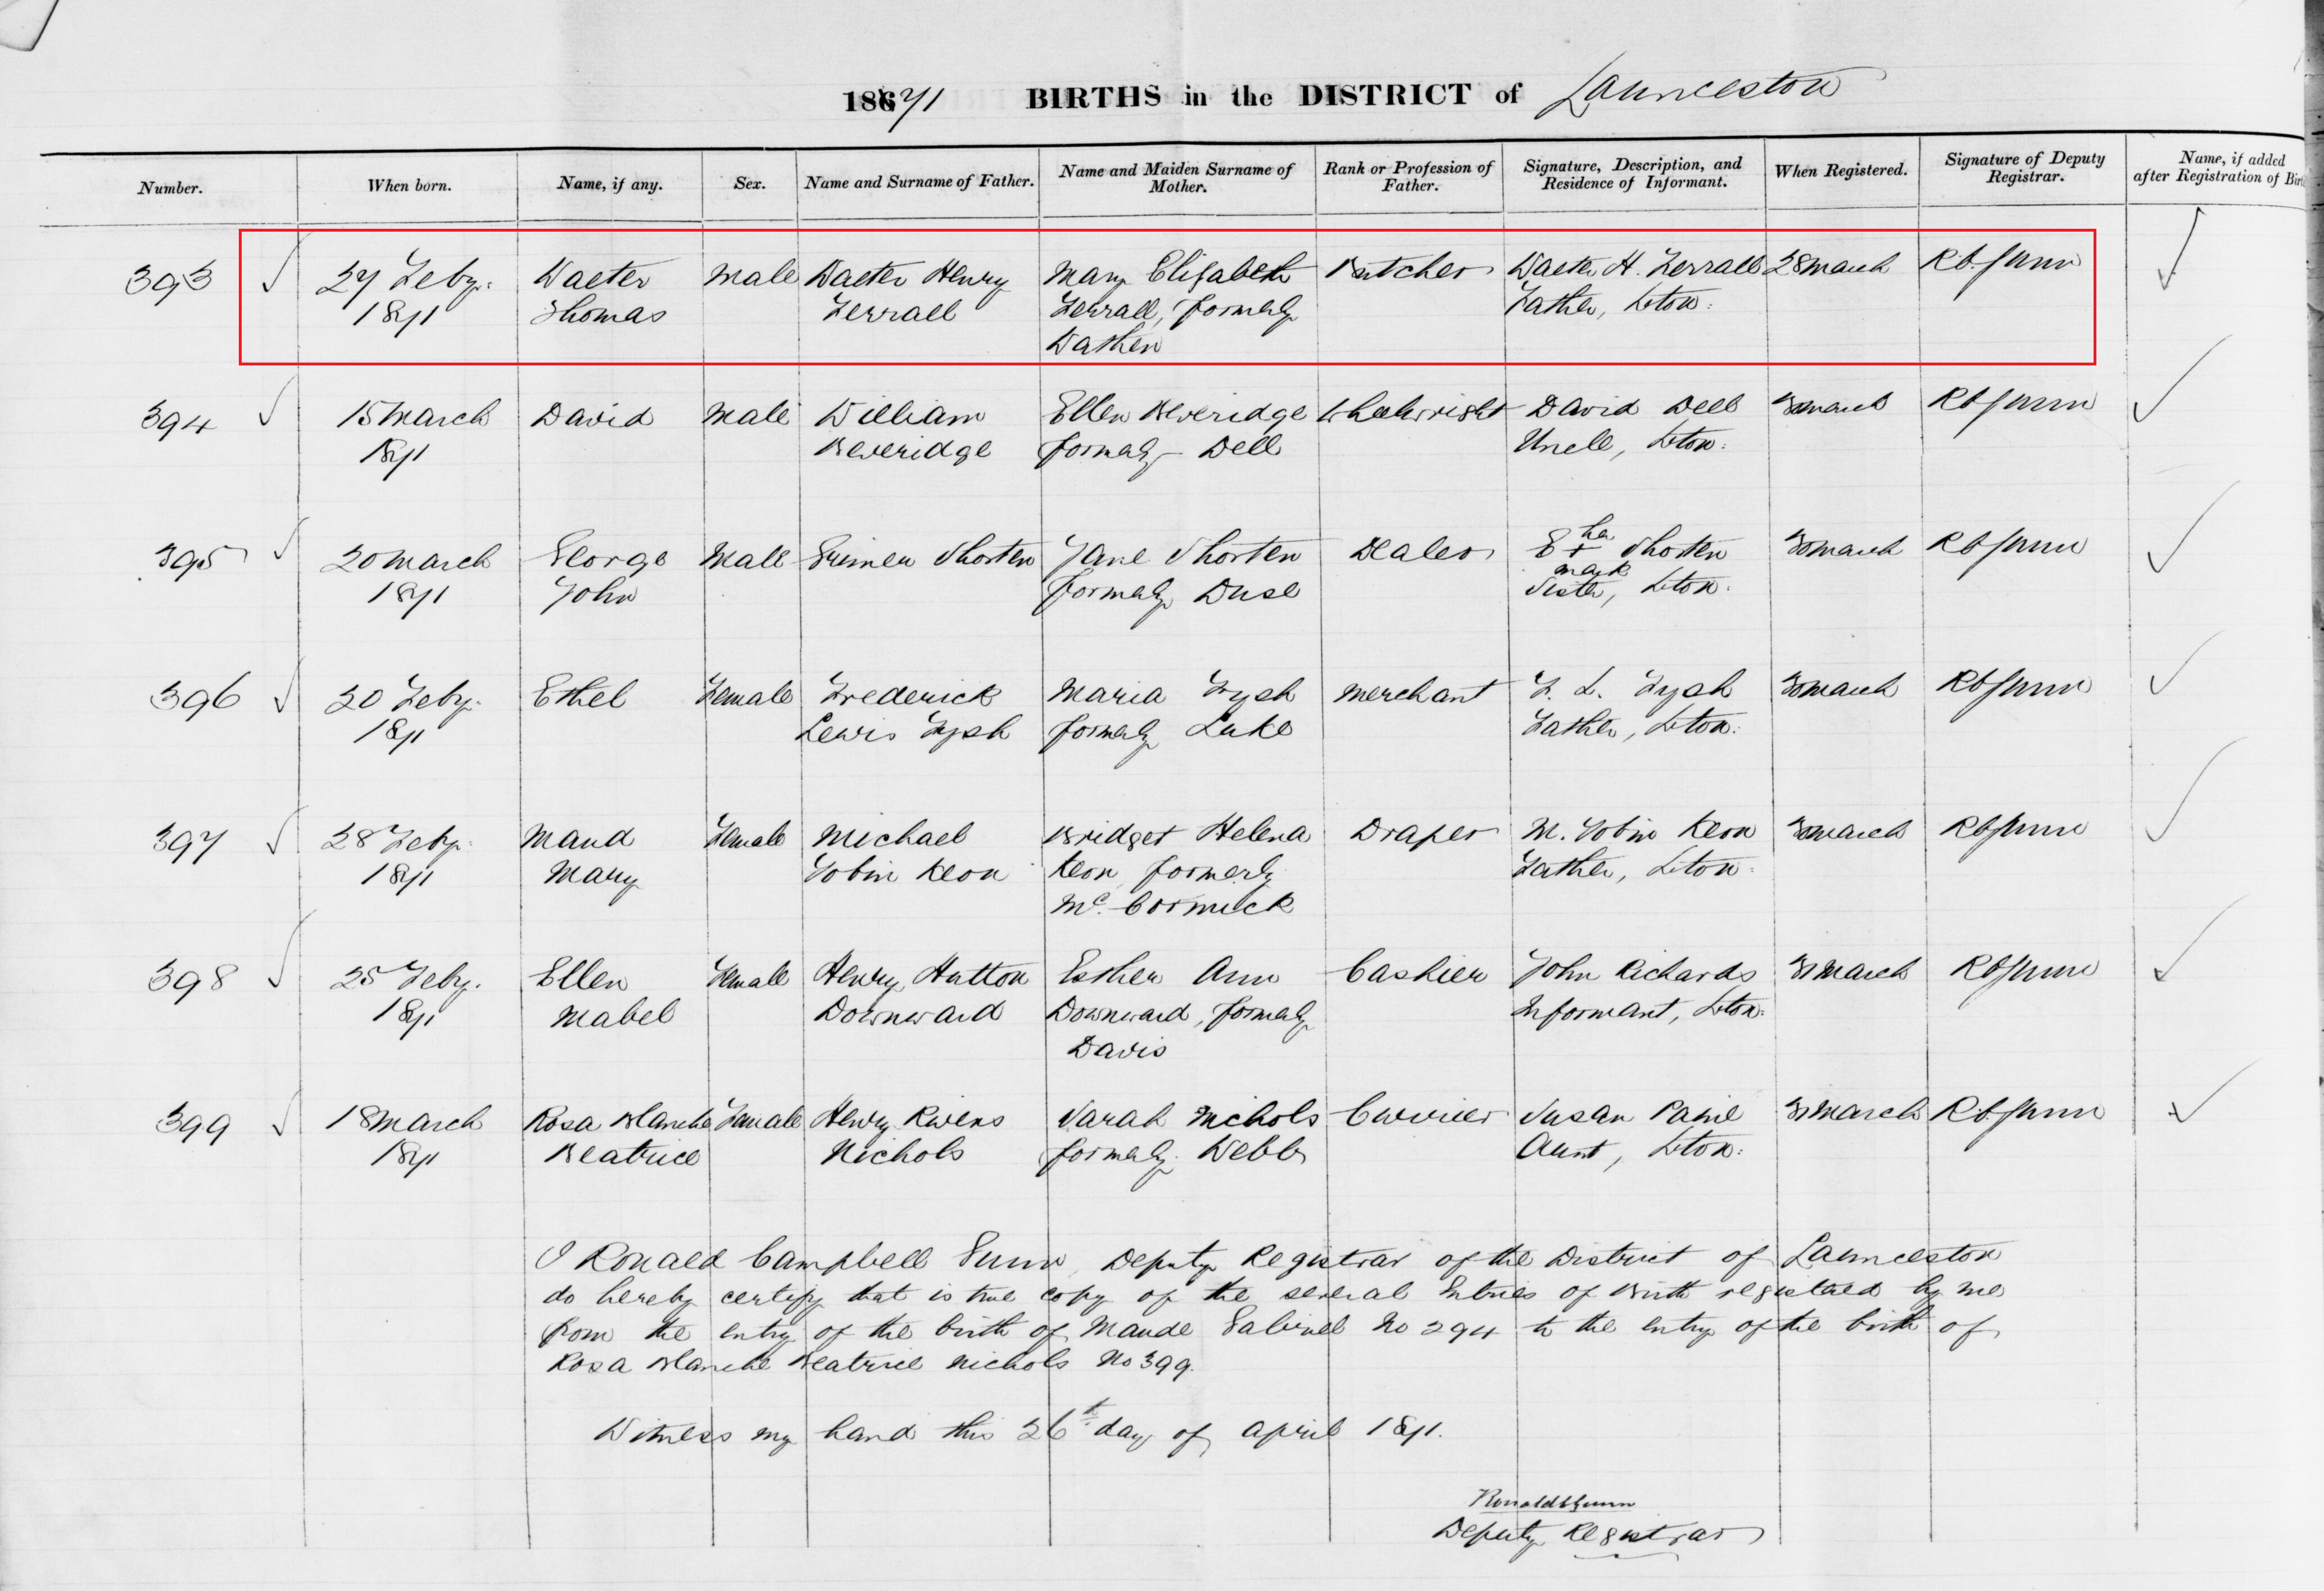 186 71 BIRTHS in the DISTRICT of Launceston
Number. When born. Name, if any. Sex. Name and Surname of Father. Name and Maiden Surname of Mother. Rank or Profession of Father. Signature, Description, and Residence of Informant. When Registered. Signature of Deputy Registrar. Name, if added after Registration of Birt
393 27 Feby. Walter Male Walter Henry Mary Elizabeth Butcher Walter H. Ferrall 28 March RCGunn
1871 Thomas Ferrall Ferrall, formerly Father, Lton.
Wathen
394 15 March David Male William Ellen Beveridge Wheelwright David Dell 30 March RCGunn
1871 Beveridge formerly Dell Uncle, Lton.
395 20 March George Male Shorten Jane Shorten Dealer E her + Shorten 30 March RCGunn
mark
1871 John formerly Sister, Lton.
396 20 Feby. Ethel Female Frederick Maria Fysh Merchant F. L. Fysh 30 March RCGunn
1871 Lewis Fysh formerly Luke Father, Lton.
397 28 Feby. Maud Female Michael Bridget Helena Draper M. Tobin Keon 30 March RCGunn
1871 Mary Tobin Keon Keon formerly Father, Lton.
Mc. Cormick
398 25 Feby. Ellen Female Henry Hutton Esther Ann Cashier John Richards 31 March RCGunn
1871 Mabel Downward Downward, formerly Informant, Lton.
Davis
399 18 March Rosa Blanche Female Henry Rivers Sarah Nichols Currier Susan Paine 31 March RCGunn
1871 Beatrice Nichols formerly Webb Aunt, Lton.
I Ronald Campbell Gunn, Deputy Registrar of the District of Launceston
do hereby certify that is true copy of the several Entries of Birth registered by me
from the entry of the birth of Maude No 294 to the entry of the birth of
Rosa Blanche Beatrice Nichols No 399.
Witness my hand this 26th day of April 1871.
Ronald C Gunn
Deputy Registrar